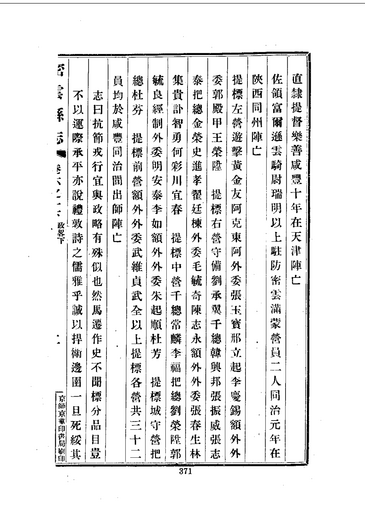 直隸提督樂善咸豐十年在天津陣亡
佐領富爾遜雲騎尉瑞明以上駐防密雲滿蒙營員二人同治元年在
陝西同州陣亡
提標左營遊擊黃金友阿克東阿外委張玉寶那立起李慶錫額外外
委郭殿甲王榮陞 提標右營守備劉承翼千總韓興邦張振威張志
泰把總金榮史進孝翟廷棟外委毛毓奇陳志永額外外委張春生林
集貴訃智勇何彩川宜春 提標中營千總常麟李福把總劉榮陞郭
毓良經制外委明安泰李如額外外委朱起順杜芳 提標城守營把
總杜芬 提標前營額外外委武維貞武全以上提標各營共三十二
員均於咸豐同治間出師陣亡
志曰抗節戎行宜與政略有殊似也然馬遷作史不聞標分品目豈
不以運際承平亦說禮敦詩之儒雅乎誠以捍衛邊圉一旦死綏其
密雲縣志
卷六之六 政畧下
京師京華印書局刷印
371